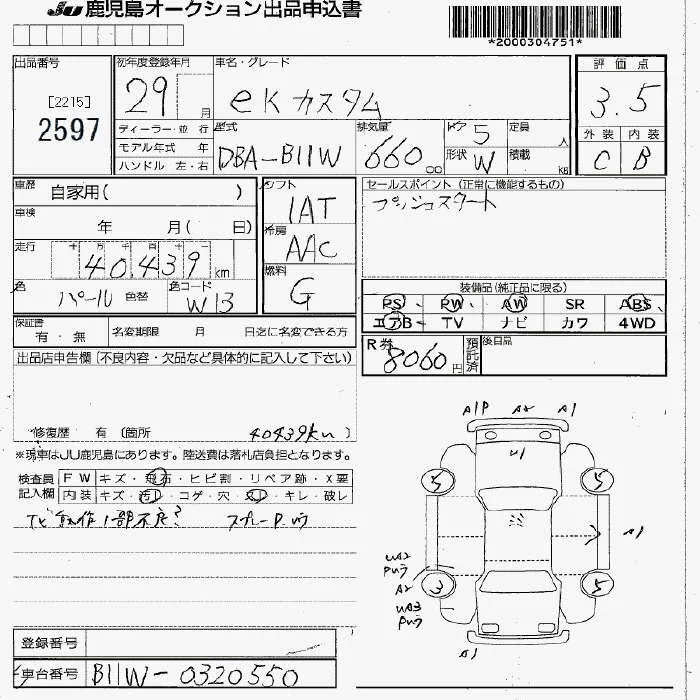 JU 鹿児島オークション出品申込書
*2000304751*
出品番号
[2215]
2597
初年度登録年月
29 月
車名・グレード
eKカスタム
評価点
3.5
外装 内装
C B
ディーラー・並行
モデル年式 年
ハンドル 左・右
型式
DBA-B11W
排気量
660 cc
ドア 5
形状 W
定員 人
積載 KG
車歴 自家用( )
車検 年 月( 日)
走行 十 万 千 百 十
40,439 km
色 パール 色替
色コード W13
シフト
IAT
冷房
AAC
燃料
G
セールスポイント(正常に機能するもの)
プッシュスタート
装備品(純正品に限る)
PS PW AW SR ABS
エアB TV ナビ カワ 4WD
保証書 有・無
名変期限 月 日迄に名変できる方
R券 8060円
預託済
後日品
出品店申告欄(不良内容・欠品など具体的に記入して下さい)
修復歴 有 (箇所 40439km)
※現車はJU鹿児島にあります。陸送費は落札店負担となります。
検査員記入欄
FW キズ・飛石・ヒビ割・リペア跡・X要
内装 キズ・汚れ・コゲ・穴・・キレ・破レ
1部不良? スプレーP
A1P A2 A1
U1
5 5
A1
UA2
A2
3 5
UA3
A1
登録番号
車台番号 B11W-0320550